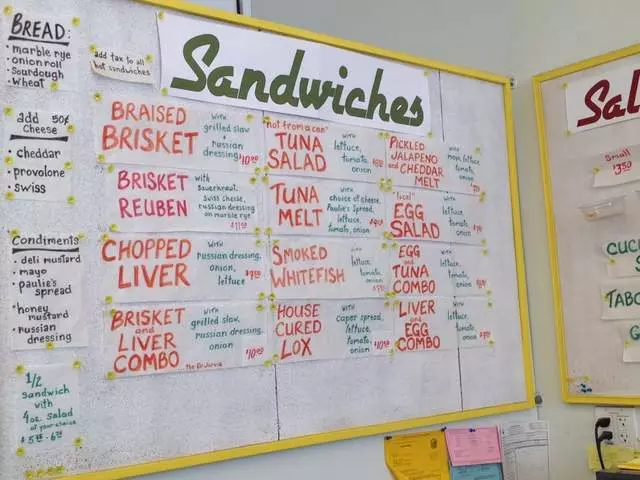 BREAD:
• marble rye
• onion roll
• Sourdough
• Wheat
add 50¢
Cheese
• cheddar
• provolone
• swiss
Condiments
• deli mustard
• mayo
• paulie's
spread
• honey
mustard
• russian
dressing
1/2
sandwich
with
4 oz. salad
of your choice
add tax to all
hot sandwiches
Sandwiches
BRAISED
BRISKET
with
grilled slaw
+
russian
dressing
BRISKET
REUBEN
with
Sauerkraut,
Swiss cheese,
russian dressing
on marble rye
CHOPPED
LIVER
with
russian dressing,
onion,
lettuce
BRISKET
and
LIVER
COMBO
with
grilled slaw,
russian dressing,
onion
"not from a can"
TUNA
SALAD
with
lettuce,
tomato,
onion
TUNA
MELT
with
choice of cheese,
Paulie's Spread,
lettuce,
tomato, onion
SMOKED
WHITEFISH
with
lettuce,
tomato,
onion
HOUSE
CURED
LOX
with
caper spread,
lettuce,
tomato,
onion
PICKLED
JALAPEÑO
and CHEDDAR
MELT
with
mayo, lettuce,
tomato,
onion
"local"
EGG
SALAD
with
lettuce,
tomato,
onion
EGG
and
TUNA
COMBO
with
lettuce,
tomato,
onion
LIVER
and
EGG
COMBO
with
lettuce,
tomato,
onion
Sal
Small
$3.50
CUC
TABO